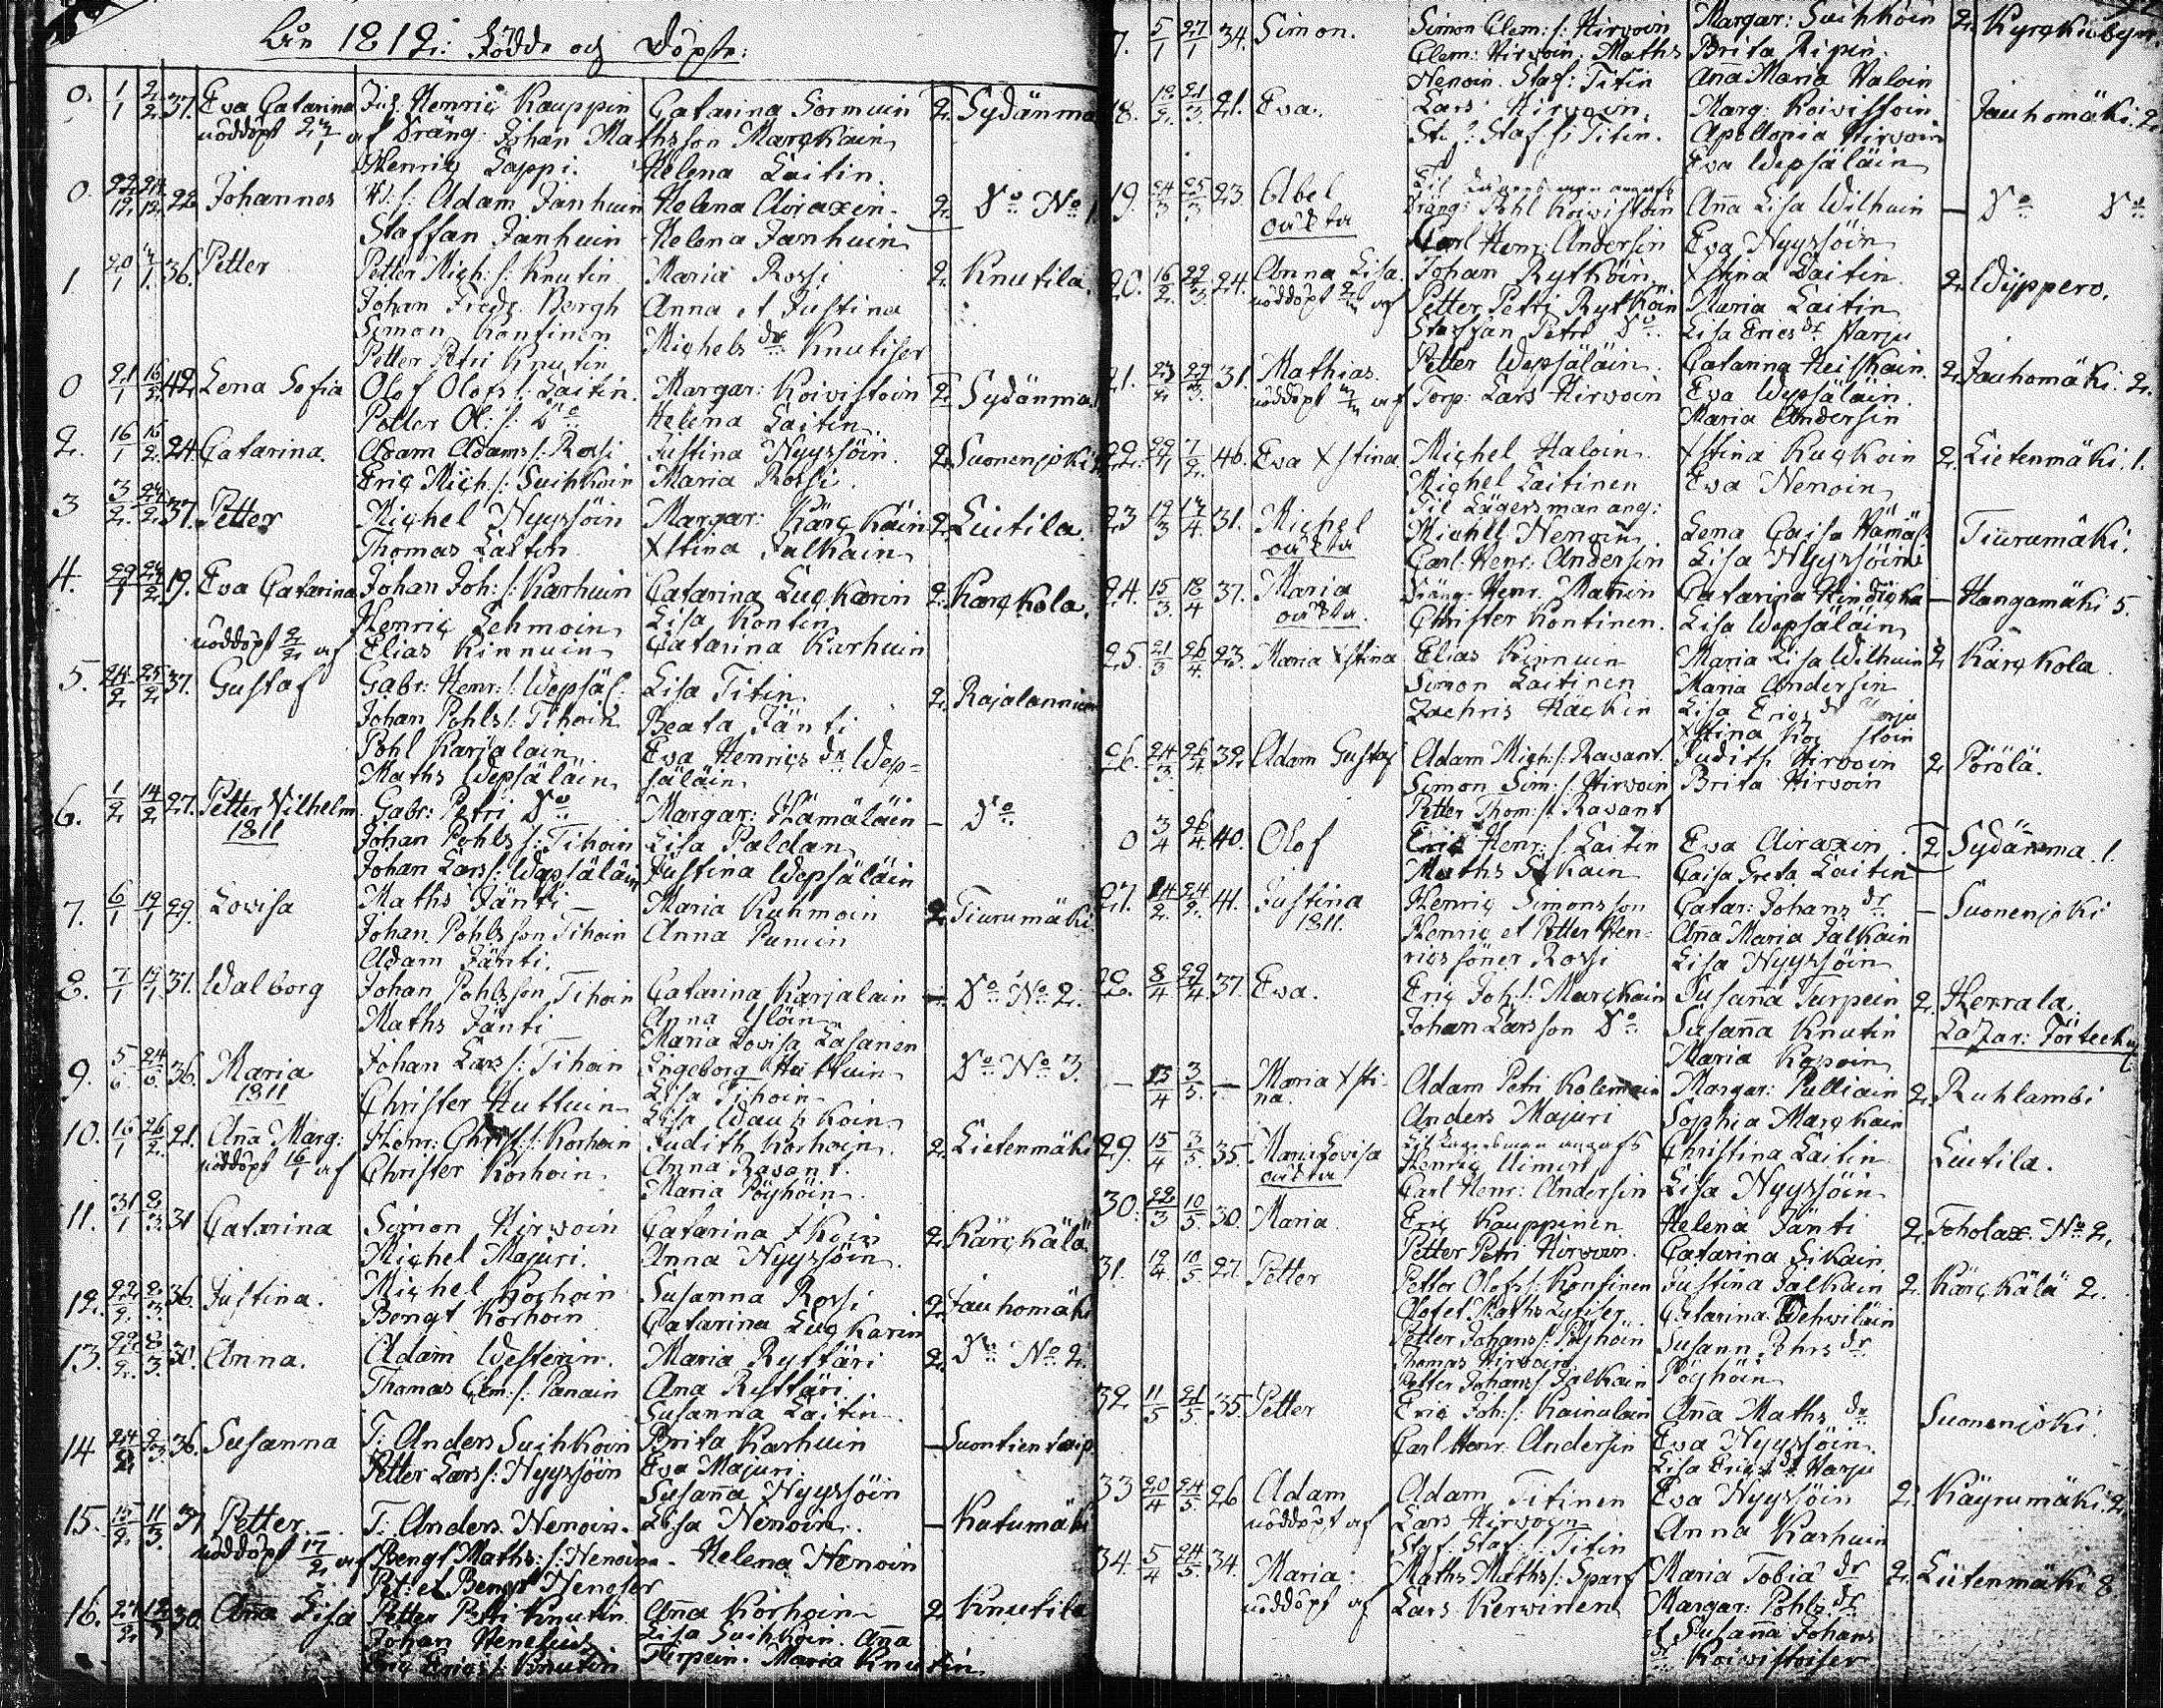 År 1812: Födde och Döpte:
0. 1/1 2/2 37. Eva Catarina Joh. Henric Kauppin Catarina Sormuin 2. Sydänma
nöddöpt af Dräng. Johan Mathsson Marckain
Henric Lappi. Helena Laitin.
0. 22/12 29/12 22 Johannes Adam Janhuin Helena Airaxin 2. Do No 1
Staffan Janhuin Helena Janhuin
1 20/1 36. Petter Petter Mich: s: Knutin Maria Rossi 2. Knutila.
Johan Fredr. Bergh Anna et Justina
Simon Kontinen Michels dr Knutiser
Petter Petri Knutin
0 21/1 16/2 42 Lena Sofia Olof Olofs s: Laitin. Margar: Koivistoin 2. Sydänma
Petter Ol: s: Do Helena Laitin
2. 16/1 16/2 24 Catarina. Adam Adams s: Rossi Justina Nyyssöin. 2. Suonenjoki
Eric Mich. s: Suihkoin Maria Rossi.
3 3/2 24/2 37. Petter Michel Nyyssöin Margar: Kärckäin 2. Liutila.
Thomas Laitin Xstina Jalkain
4. 29/1 24/2 19. Eva Catarina Johan Joh: s: Karhuin Catarina Luckarin 2. Karckola.
Henric Lehmoin Lisa Kontin
nöddöpt 2/2 af Elias Kinnuin Catarina Karhuin
5. 24/2 25/2 37. Gustaf Gabr: Henr: s: Wepsäl: Lisa Titin 2. Rajalannium
Johan Pohls s: Tihoin Beata Jänti
Pohl Karjalain Eva Henrics dr Wep=
Maths Wepsäläin säläin
6. 1/2 14/2 27. Petter Vilhelm Gabr: Petri Do Margar: Hämäläin — Do
1811 Johan Pohls s: Tihoin Lisa Paldan
Johan Lars s: Wepsäläin Justina Wepsäläin
7. 6/1 19/1 29. Lovisa Maths Jänti Maria Kuhmoin 2. Tiurumäki.
Johan Pohls son Tihoin Anna Punnin
Adam Jänti.
8. 7/1 19/1 31. Walborg Johan Pohlsson Tihoin Catarina Karjalain — Do No 2.
Maths Jänti Anna Ylöin
Maria Lovisa Lasanen
9. 5/6 24/6 36. Maria Johan Lars s: Tihoin Ingeborg Huttuin Do No 3.
1811 Christer Huttuin Lisa Tihoin
Lisa Wauhkoin
10. 16/1 26/2 21. Anna Marg: Henr: Christ s: Korhoin Judith Korhoin. 2. Lietenmäki
nöddöpt 16/1 af Christer Korhoin Anna Ravant.
Maria Pöyhöin
11. 31/1 8/3 31 Catarina Simon Hirvoin Catarina 2. Kärckälä
Michel Majuri. Anna Nyyssöin
12. 22/2 2/3 36. Justina. Michel Korhoin Susanna Rossi 2. Jauhomäki
Bengt Korhoin Catarina Luckarin
13. 29/2 8/3 30. Anna. Adam Westerin. Maria Ryttäri 2. Do No 2.
Thomas Clem: s: Panain Ana Ryttäri
Susanna Laitin
14 24/2 36. Susanna T. Anders Suihkoin Brita Karhuin — Suontientaip
Petter Lars s: Nyyssöin Eva Majuri.
Susanna Nyyssöin
15. 15/2 11/3 37 Petter T. Anders Nenoin. Lisa Nenoin. — Katumäki
nöddöpt 17/2 af Bengt Maths: s: Nenoin. Helena Nenoin
Pet: et Bengt Nenoser
16. 24/2 30. Anna Lisa Petter Petri Knutin Anna Korhoin 2. Knutila
Johan Henelius Lisa Suihkoin. Anna
Eric Erics s: Knutin Turpein. Maria Knutin
7. 5/1 27/1 34. Simon. Simon Clem: s: Hirvoin Margar: Suihkoin 2. Kyrckiobyn.
Clem: Hirvoin, Maths Brita Ripin.
Nenoin. Staf: Titin Anna Maria Haloin
18. 12/2 21/3 21. Eva. Lars Hirvoin, Marg: Koivistoin Jauhomäki. 2
St. s: Staf s: Titin. Apollonia Hirvoin
Eva Wepsäläin
19. 24/3 25/3 23. Abel Til Lägersman angafs
oäkta Dräng: Pohl Koivistoin Anna Lisa Wilhuin — Do Do
Carl Henr: Andersin Eva Nyyssöin
20. 16/2 22/3 24. Anna Lisa. Johan Rytköin Xstina Laitin 2. Wyppero.
nöddöpt af Petter Petri Rytköin Maria Laitin
Staffan Petri Do Lisa Erics dr Harju
21. 23/2 29/3 31. Mathias. Petter Wepsäläin. Catarina Heiskain. 2. Jauhomäki. 2.
nöddöpt af Torp: Lars Hirvoin Eva Wepsäläin.
Maria Andersin
22. 29/1 7/2 46. Eva Xstina. Michel Haloin. Xstina Kuckoin 2. Lietenmäki. 1.
Michel Laitinen Eva Nenoin
23 19/3 31. Michel Til Lägersman ang:
oäkta Michel Nenoin. Lena Caisa Hämäl: Tiurumäki.
Carl. Henr: Andersin Lisa Nyyssöin
24. 15/3 18/4 37. Maria Dräng. Henr. Mannin Catarina — Hangamäki 5.
oäkta. Christer Kontinen. Lisa Wepsäläin
25. 21/3 26/4 23. Maria Xstina Elias Kinnuin Maria Lisa Wilhuin 2 Kärckola
Simon Laitinen Maria Andersin
Zachris Häckin Lisa Erics dr Harju
Xstina Koi stoin
26. 24/3 26/4 32 Adam Gustaf Adam Mich: s: Ravant. Judith Hirvoin 2 Pörölä.
Simon Sim: s: Hirvoin Brita Hirvoin
Petter Thom: s: Ravant
0 3/4 26/4 40. Olof Eric Henr: s: Laitin Eva Airaxin 2 Sydänma. 1.
Maths Sikain Caisa Greta Laitin
27. 24/2 41. Justina Henric Simonsson Catar: Johans dr — Suonenjoki
1811. Henric et Petter Hen= Anna Maria Jalkain
rics söner Rossi Lisa Nyyssöin
28. 8/4 29/4 37. Eva. Eric Joh s: Marckain Susanna Turpein 2. Herrala.
Johan Larsson Do Susanna Knutin Lazar: Förteckn
Maria Kopoin
— 13/4 3/5 — Maria Xsti= Adam Petri Kolemain Margar: Pulliain 2. Ruhlambi
na. Anders Majuri Sophia Marckain
29. 15/4 3/5 35. Maria Lovisa Til Lägersman angafs Christina Laitin Liutila.
oäkta Henric Uimin
Carl Henr: Andersin Lisa Nyyssöin
30. 22/3 10/5 30. Maria. Eric Kauppinen Helena Jänti 2. Toholax. No 2.
Petter Petri Hirvoin. Catarina Sikain.
31. 19/4 10/5 27. Petter Petter Olofs s: Kontinen Justina Jalkain 2 Kärckälä 2.
Olof et Maths Lytiser Catarina Wehviläin
Petter Johans s: Pöyhöin Susann Pehrs dr
Thomas Hirvoin Pöyhöin
Petter Johans s: Jalkain
32 11/5 21/5 35. Petter Eric Joh: s: Kainulain Anna Maths dr Suonenjoki.
Carl Henr. Andersin Eva Nyyssöin.
Lisa Erics dr Harju
33 20/4 24/5 26 Adam Adam Titinen Eva Nyyssöin 2. Käyrumäki. 2.
nöddöpt af Lars Hirvoin Anna Karhuin
Staf: Staf: s: Titin
34. 5/4 24/5 34. Maria. Maths Maths s: Sparf Maria Tobiæ dr 2. Lietenmäki 8
nöddöpt af Lars Kervinen Margar: Pohls dr
et Susanna Johans
dr Koivistoiser